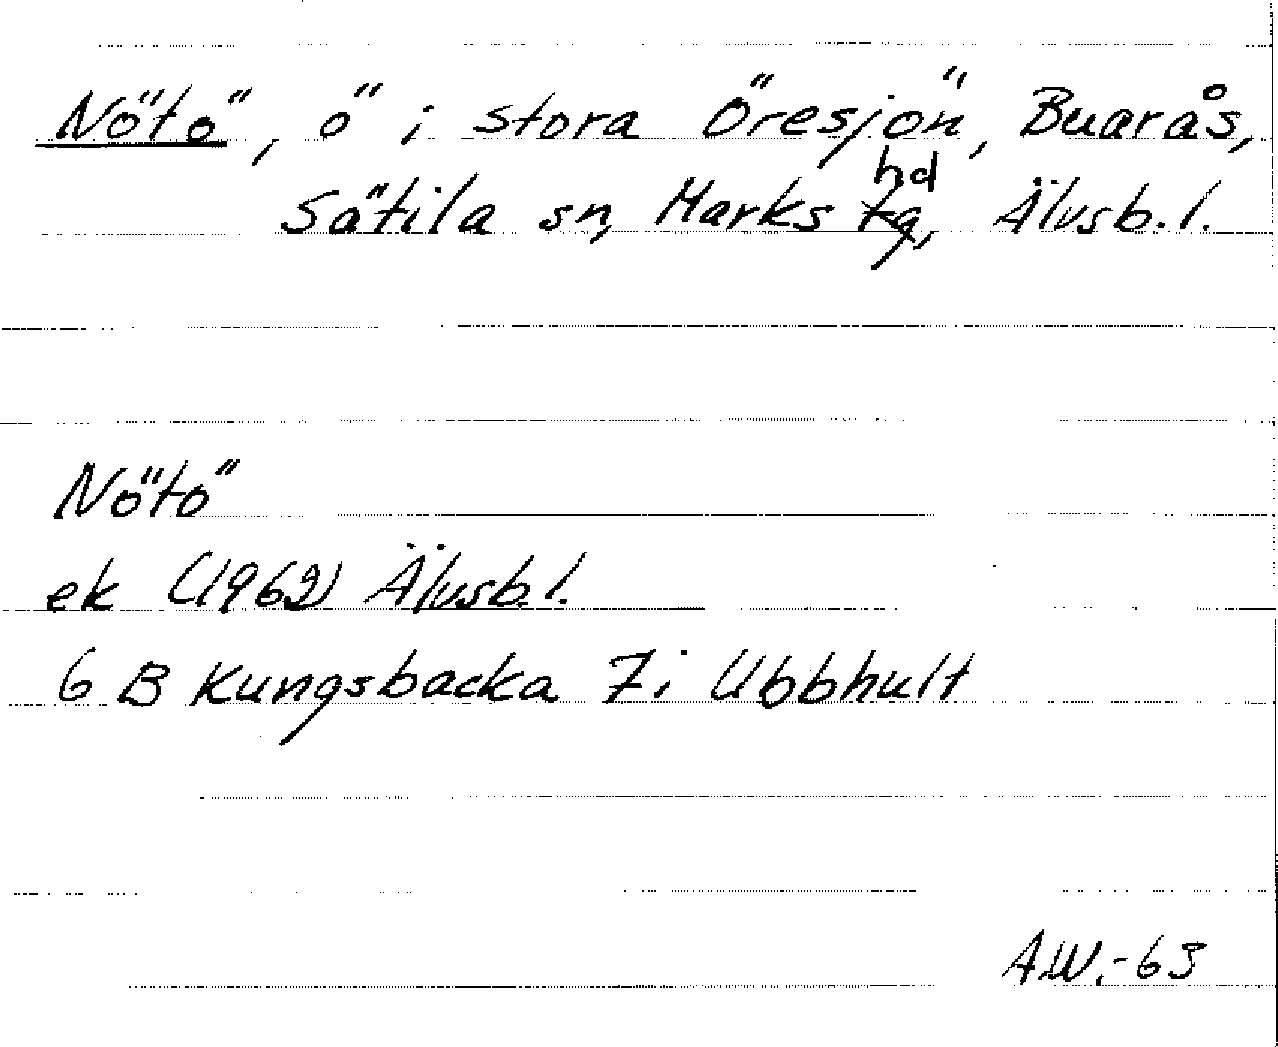 Nötö, ö i stora Öresjön, Buarås,
Sätila sn, Marks hd, Älvsb. l.
Nötö
ek (1962) Älvsb. l.
6 B Kungsbacka 7i Ubbhult
A.W.-63